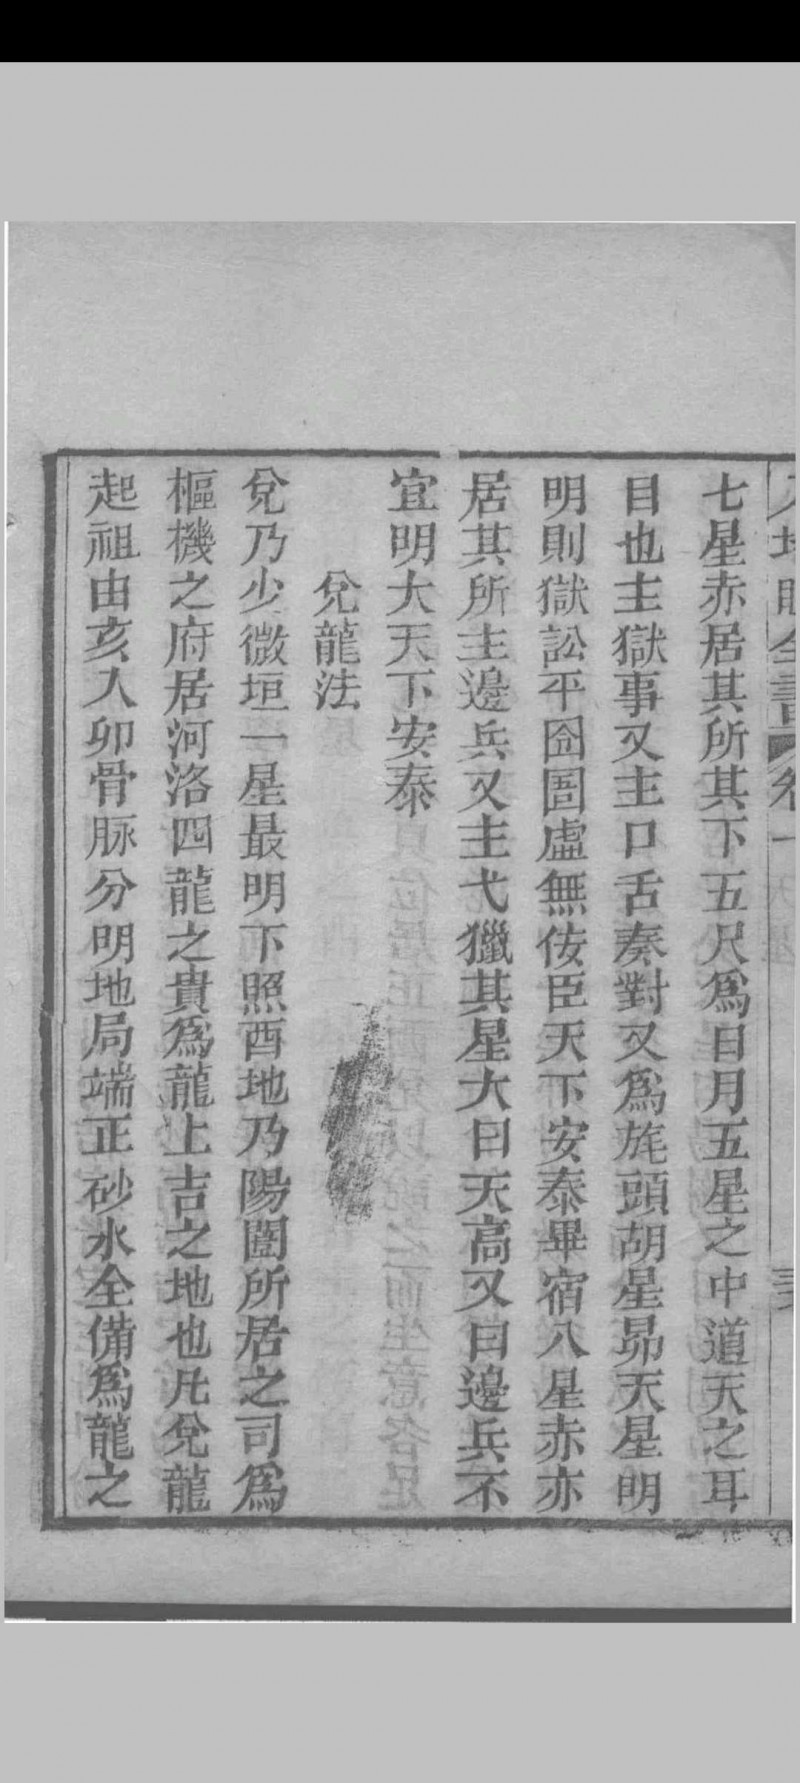 七星赤居其所其下五尺爲日月五星之中道天之耳
目也主獄事又主口舌奏對又爲旄頭胡星昴天星明
明則獄訟平囹圄虛無佞臣天下安泰畢宿八星赤亦
居其所主邊兵又主弋獵其星大曰天高又曰邊兵不
宜明大天下安泰
兌龍法
兌乃少微垣一星最明下照酉地乃陽闓所居之司爲
樞機之府居河洛四龍之貴爲龍上吉之地也凡兌龍
起祖由亥入卯骨脉分明地局端正砂水全備爲龍之